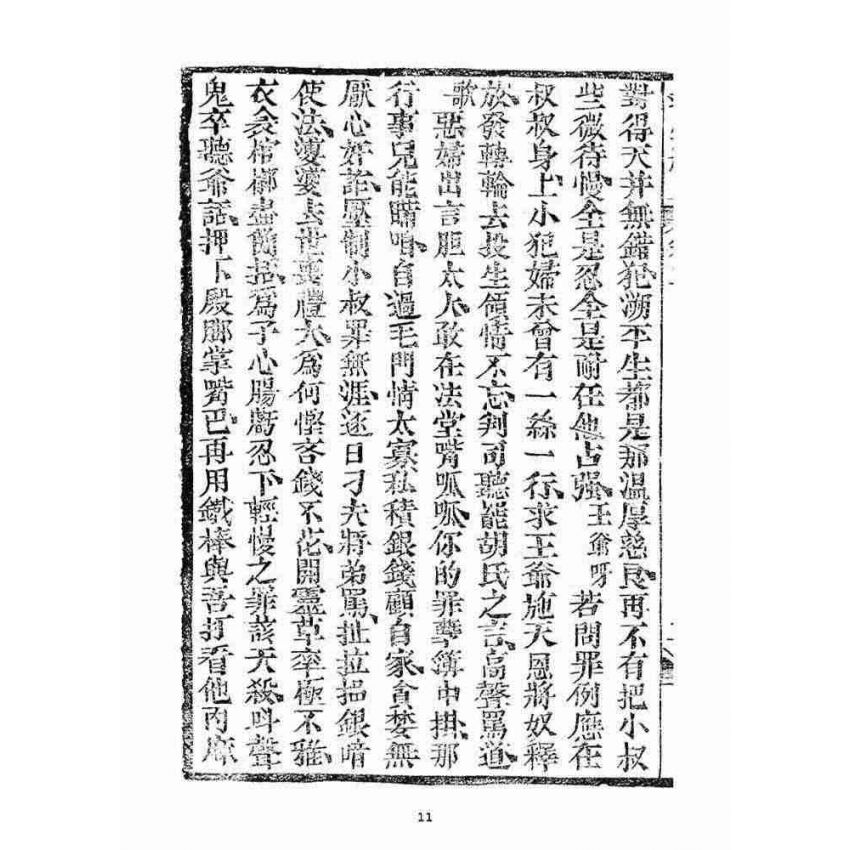 對得天并無錯犯溯平生都是那温厚慈良再不有把小叔
些微待慢全是忍全是耐在他占強王爺呀若問罪例應在
叔叔身上小犯婦未曾有一絲一行求王爺施天恩將奴釋
放發轉輪去投生領情不忘判司聽罷胡氏之言高聲罵道
歌惡婦出言胆太大敢在法堂嘴呱呱你的罪孽簿中掛那
行事兒能瞞咱自過毛門情太寡私積銀錢顧自家貪婪無
厭心奸詐壓制小叔罪無涯逐日刁夫將弟罵扯拉掯銀暗
使法婆婆去世喪禮大為何慳吝錢不花開靈草率極不雅
衣衾棺槨盡簡括為子心腸虧忍下輕慢之罪該天殺叫聲
鬼卒聽爺話押下殿脚掌嘴巴再用鐵棒與吾打看他肉麻
11